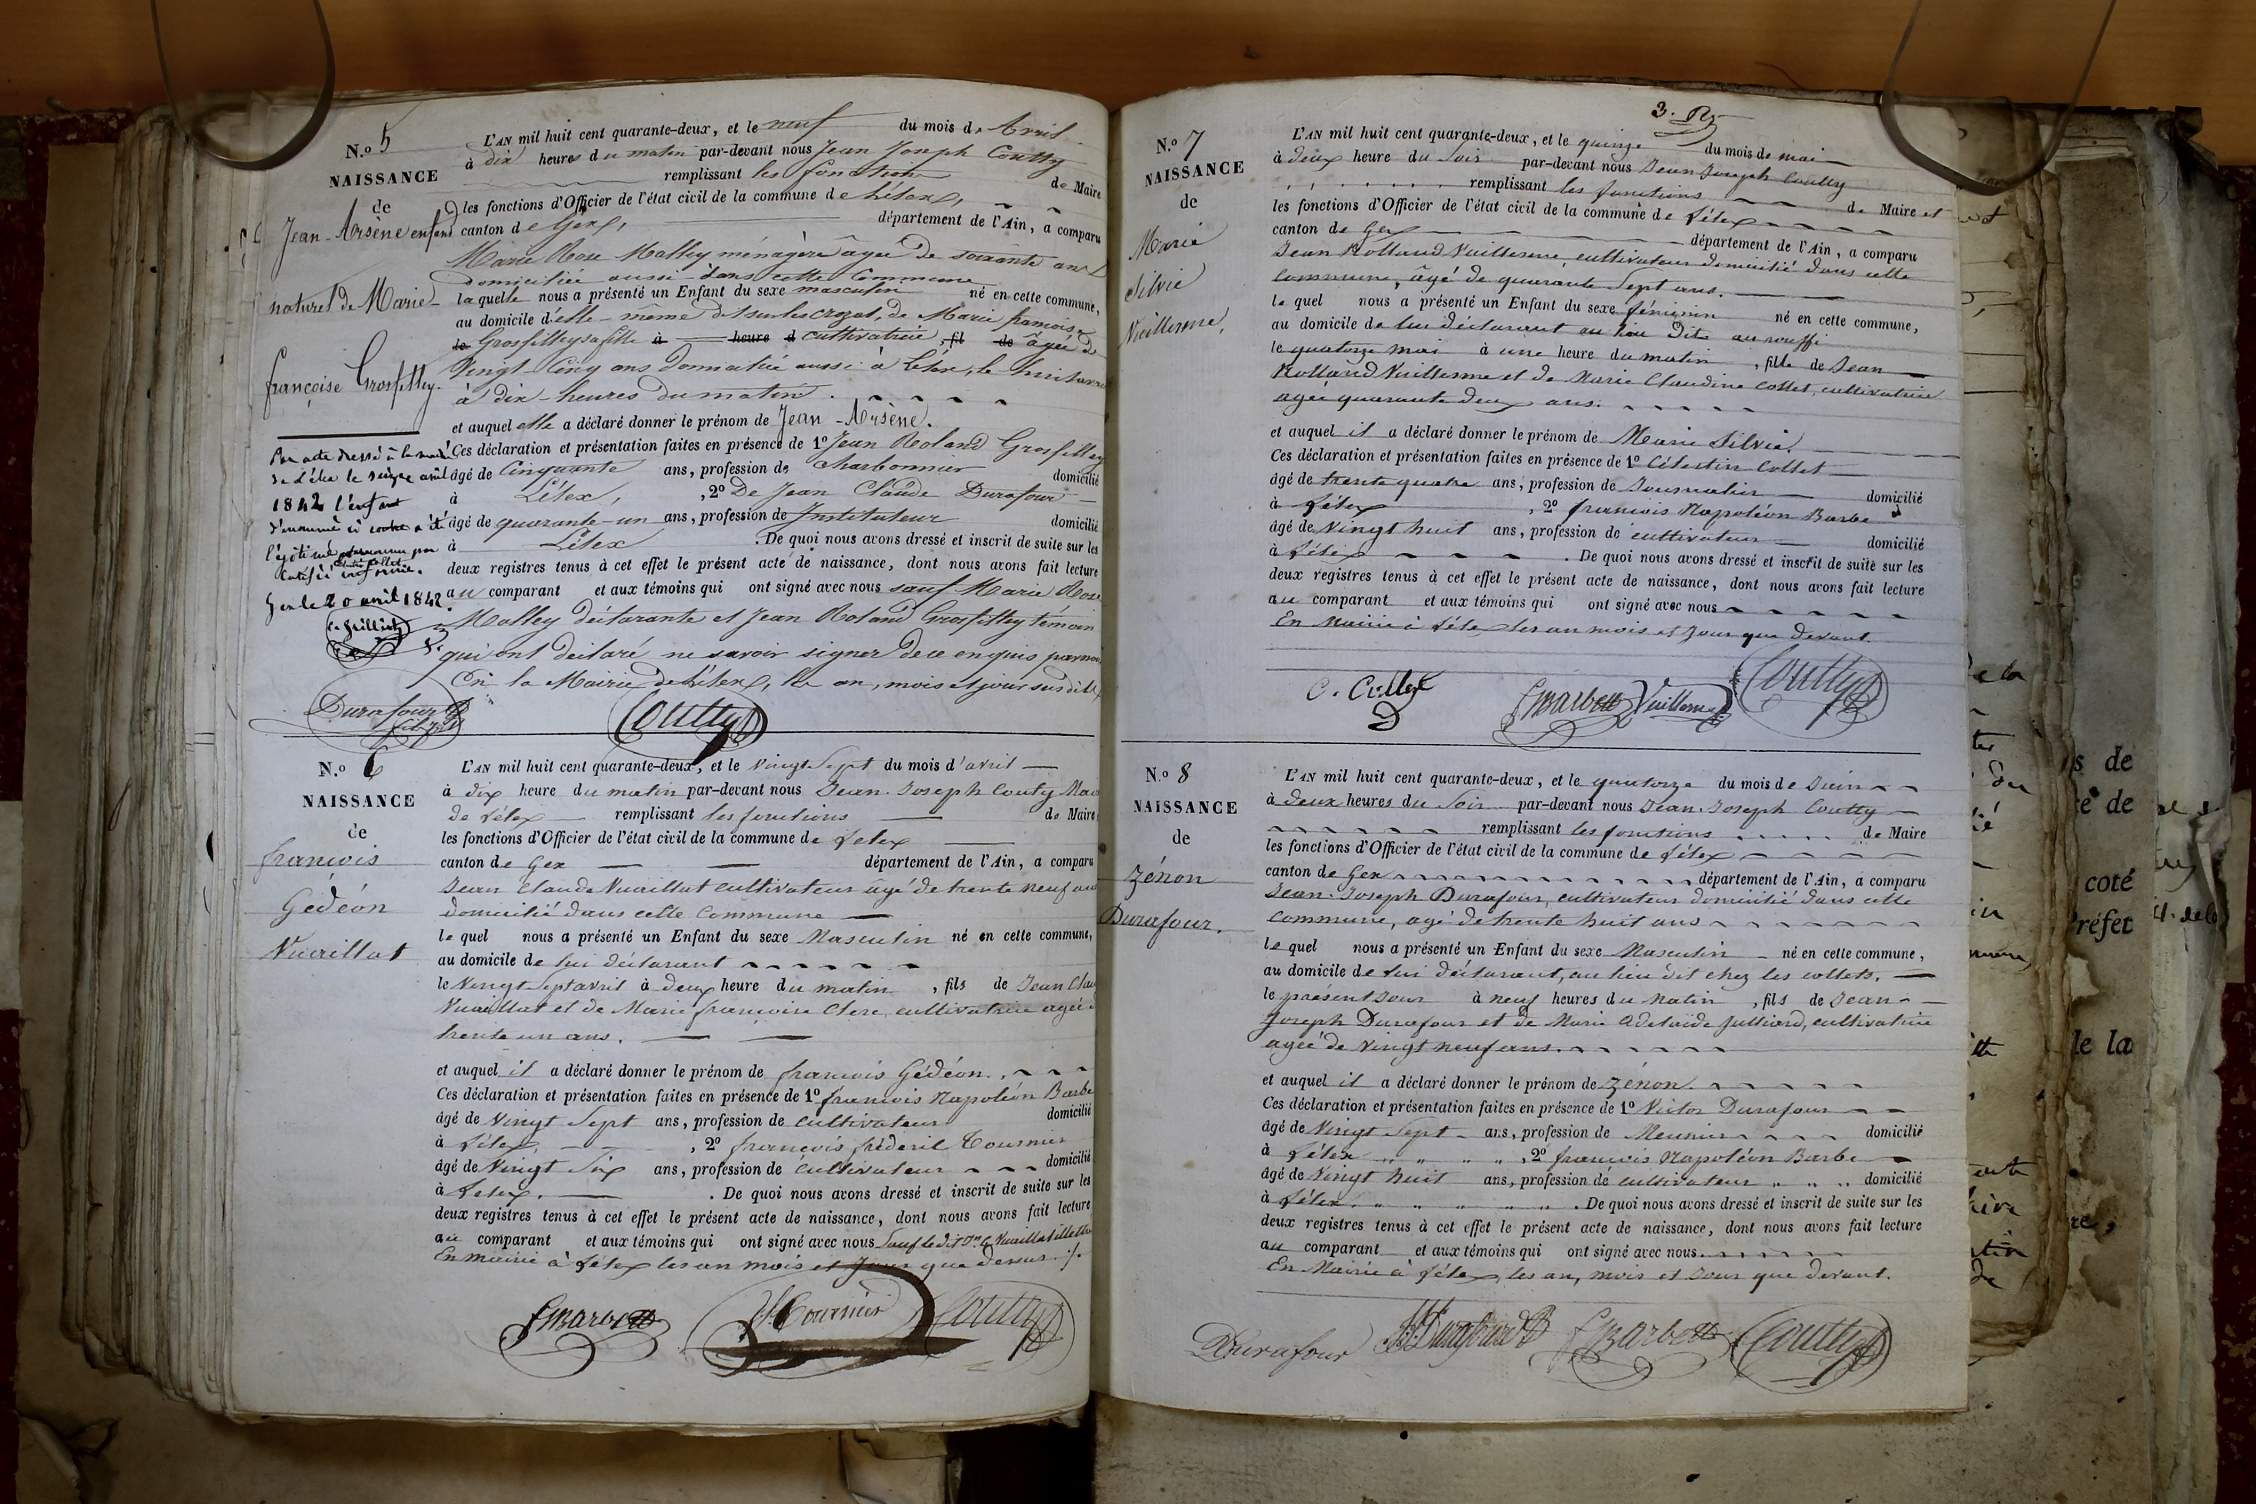 N.o 5
NAISSANCE
de
Jean-Arsène enfant
naturel de Marie-
françoise Grosfilley.
Par acte dressé à la mairie
de Lélex le seize avril
1842 l'enfant
dénommé ci contre a été
légitimé
Gex le 20 avril 1842.
L'AN mil huit cent quarante-deux, et le neuf du mois de Avril
à dix heures du matin par-devant nous Jean Joseph Coutty
remplissant les fonctions de Maire
les fonctions d'Officier de l'état civil de la commune de Lélex,
canton de Gex, département de l'Ain, a comparu
Marie Rose Malley ménagère âgée de soixante ans
domiciliée aussi dans cette commune
laquelle nous a présenté un Enfant du sexe masculin né en cette commune,
au domicile d'elle-même dit sur les crozat, de Marie françoise
le Grosfilley sa fille à heure d cultivatrice, fil de âgée de
Vingt-Cinq ans domiciliée aussi à Lélex, le huit avril
à dix heures du matin.
et auquel elle a déclaré donner le prénom de Jean-Arsène.
Ces déclaration et présentation faites en présence de 1o Jean Roland Grosfilley
âgé de Cinquante ans, profession de charbonnier domicilié
à Lélex, , 2o De Jean Claude Durafour
âgé de quarante-un ans, profession de Instituteur domicilié
à Lélex . De quoi nous avons dressé et inscrit de suite sur les
deux registres tenus à cet effet le présent acte de naissance, dont nous avons fait lecture
au comparant et aux témoins qui ont signé avec nous sauf Marie Rose
Malley déclarante et Jean Roland Grosfilley témoin
qui ont déclaré ne savoir signer de ce enquis par nous
En la Mairie de Lélex, les an, mois et jour susdits,
Durafour Coutty
N.o 6
NAISSANCE
de
françois
Gédéon
Vuaillat
L'AN mil huit cent quarante-deux, et le Vingt Sept du mois d'avril
à dix heure du matin par-devant nous Jean-Joseph Couty Maire
de Lélex remplissant les fonctions de Maire
les fonctions d'Officier de l'état civil de la commune de Lelex
canton de Gex département de l'Ain, a comparu
Jean Claude Vuaillat cultivateur âgé de trente neuf ans
domicilié dans cette commune
le quel nous a présenté un Enfant du sexe Masculin né en cette commune,
au domicile de lui déclarant
le Vingt Sept avril à deux heure du matin , fils de Jean Claude
Vuaillat et de Marie françoise Clerc, cultivatrice agée de
trente un ans.
et auquel il a déclaré donner le prénom de françois Gédéon.
Ces déclaration et présentation faites en présence de 1o françois Napoléon Barbe
âgé de Vingt Sept ans, profession de cultivateur domicilié
à Lélex, , 2o françois fréderic Tournier
âgé de Vingt Six ans, profession de cultivateur domicilié
à Lelex. . De quoi nous avons dressé et inscrit de suite sur les
deux registres tenus à cet effet le présent acte de naissance, dont nous avons fait lecture
au comparant et aux témoins qui ont signé avec nous Sauf le dit Vuaillat
En Mairie à Lélex les an mois et Jour que dessus ./.
f Barbe Tournier Coutty
3. R
N.o 7
NAISSANCE
de
Marie
Silvie
Vuillerme,
L'AN mil huit cent quarante-deux, et le quinze du mois de mai
à deux heure du Soir par-devant nous Jean Joseph Coutty
remplissant les fonctions de Maire et
les fonctions d'Officier de l'état civil de la commune de Lélex
canton de Gex département de l'Ain, a comparu
Jean Rolland Vuillerme, cultivateur domicilié dans cette
commune, âgé de quarante Sept ans.
le quel nous a présenté un Enfant du sexe féminin né en cette commune,
au domicile de lui déclarant au lieu Dit au niuffi
le quatorze mai à une heure du matin , fille de Jean
Rolland Vuillerme et de Marie Claudine Collet, cultivatrice
agée quarante deux ans.
et auquel il a déclaré donner le prénom de Marie Silvie.
Ces déclaration et présentation faites en présence de 1o Célestin Collet
âgé de trente quatre ans, profession de Journalier domicilié
à Lélex , 2o françois Napoléon Barbe
âgé de Vingt huit ans, profession de cultivateur domicilié
à Lélex . De quoi nous avons dressé et inscrit de suite sur les
deux registres tenus à cet effet le présent acte de naissance, dont nous avons fait lecture
au comparant et aux témoins qui ont signé avec nous
En Mairie à Lélex les an mois et Jour que devant
C. Collet f Barbe Vuillerme Coutty
N.o 8
NAISSANCE
de
Zénon
Durafour.
L'AN mil huit cent quarante-deux, et le quatorze du mois de Juin
à deux heures du Soir par-devant nous Jean-Joseph Coutty
remplissant les fonctions de Maire
les fonctions d'Officier de l'état civil de la commune de Lélex
canton de Gex département de l'Ain, a comparu
Jean-Joseph Durafour, cultivateur domicilié dans cette
commune, agé de trente huit ans
le quel nous a présenté un Enfant du sexe Masculin né en cette commune,
au domicile de lui déclarant, au lieu dit chez les collets,
le présent Jour à neuf heures du Matin , fils de Jean-
Joseph Durafour et de Marie Adelaïde Julliard, cultivatrice
agée de Vingt neuf ans.
et auquel il a déclaré donner le prénom de Zénon.
Ces déclaration et présentation faites en présence de 1o Victor Durafour
âgé de Vingt Sept ans, profession de Meunier domicilié
à Lélex , 2o françois Napoléon Barbe
âgé de Vingt huit ans, profession de cultivateur domicilié
à Lélex. . De quoi nous avons dressé et inscrit de suite sur les
deux registres tenus à cet effet le présent acte de naissance, dont nous avons fait lecture
au comparant et aux témoins qui ont signé avec nous
En Mairie à Lélex, les an, mois et Jour que devant.
Durafour JJ. Durafour f Barbe Coutty
s de
de
coté
Préfet
de la